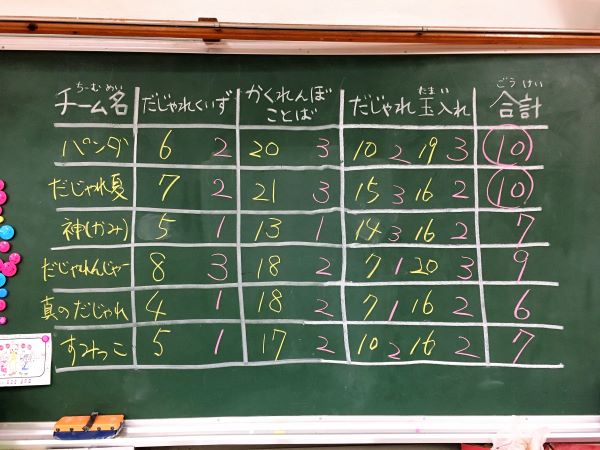 ちーむめい たまい ごうけい
チーム名 だじゃれくいず かくれんぼことば だじゃれ玉入れ 合計
パンダ 6 2 20 3 10 2 19 3 10
だじゃれ夏 7 2 21 3 15 3 16 2 10
神(かみ) 5 1 13 1 14 3 16 2 7
だじゃれんじゃー 8 3 18 2 7 1 20 3 9
真のだじゃれ 4 1 18 2 7 1 16 2 6
すみっこ 5 1 17 2 10 2 16 2 7